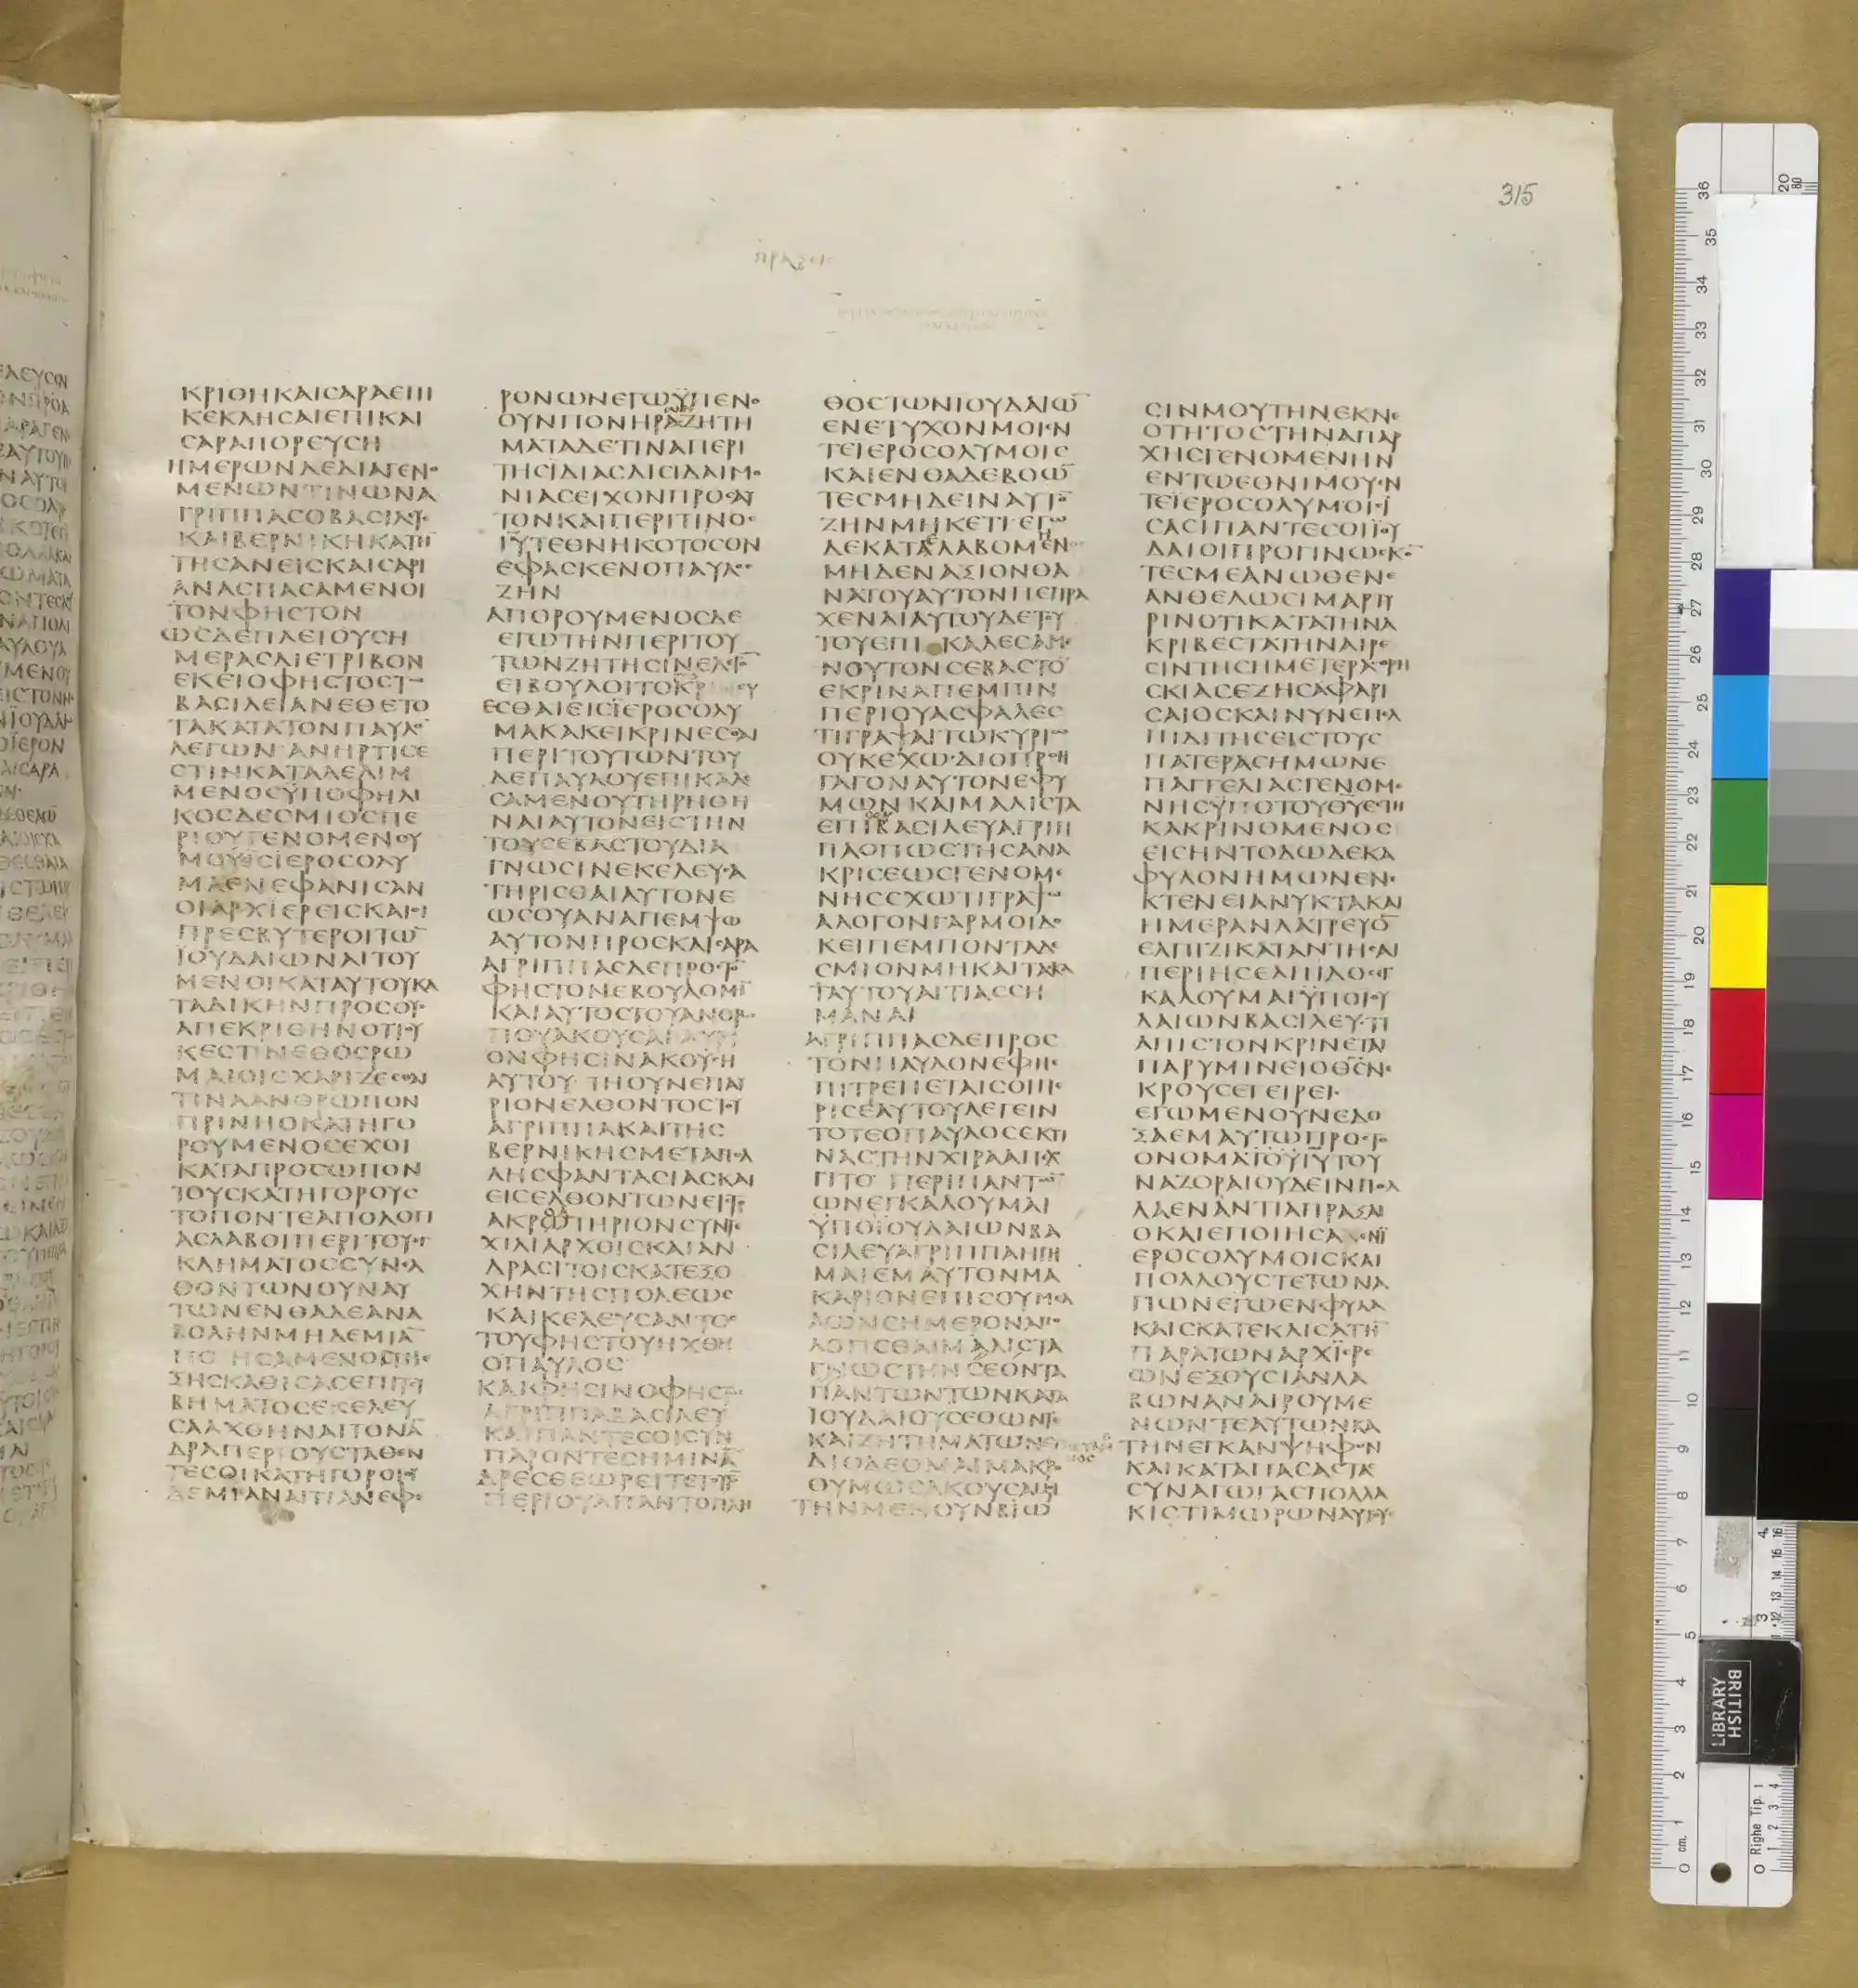 315
ΠΡΑΞΕΙC
ΚΡΙΘΗΚΑΙCΑΡΑΕΠΙ
ΚΕΚΛΗCΑΙΕΠΙΚΑΙ
CΑΡΑΠΟΡΕΥCΗ
ΗΜΕΡΩΝΔΕΔΙΑΓΕΝΟ
ΜΕΝΩΝΤΙΝΩΝΑ
ΓΡΙΠΠΑCΟΒΑCΙΛΕΥC
ΚΑΙΒΕΡΝΙΚΗΚΑΤΗ
ΤΗCΑΝΕΙCΚΑΙCΑΡΙ
ΑΝΑCΠΑCΑΜΕΝΟΙ
ΤΟΝΦΗCΤΟΝ
ΩCΔΕΠΛΕΙΟΥCΗ
ΜΕΡΑCΔΙΕΤΡΙΒΟΝ
ΕΚΕΙΟΦΗCΤΟCΤΩ
ΒΑCΙΛΕΙΑΝΕΘΕΤΟ
ΤΑΚΑΤΑΤΟΝΠΑΥΛΟ
ΛΕΓΩΝΑΝΗΡΤΙCΕ
CΤΙΝΚΑΤΑΛΕΛΙΜ
ΜΕΝΟCΥΠΟΦΗΛΙ
ΚΟCΔΕCΜΙΟCΠΕ
ΡΙΟΥΓΕΝΟΜΕΝΟΥ
ΜΟΥΕΙCΙΕΡΟCΟΛΥ
ΜΑΕΝΕΦΑΝΙCΑΝ
ΟΙΑΡΧΙΕΡΕΙCΚΑΙΟΙ
ΠΡΕCΒΥΤΕΡΟΙΤΩ̅
ΪΟΥΔΑΙΩΝΑΙΤΟΥ
ΜΕΝΟΙΚΑΤΑΥΤΟΥΚΑ
ΤΑΔΙΚΗΝΠΡΟCΟΥC
ΑΠΕΚΡΙΘΗΝΟΤΙΟΥ
ΚΕCΤΙΝΕΘΟCΡΩ
ΜΑΙΟΙCΧΑΡΙΖΕCΘΑΙ
ΤΙΝΑΑΝΘΡΩΠΟΝ
ΠΡΙΝΗΟΚΑΤΗΓΟ
ΡΟΥΜΕΝΟCΕΧΟΙ
ΚΑΤΑΠΡΟCΩΠΟΝ
ΤΟΥCΚΑΤΗΓΟΡΟΥC
ΤΟΠΟΝΤΕΑΠΟΛΟΓΙ
ΑCΛΑΒΟΙΠΕΡΙΤΟΥΕΓ
ΚΛΗΜΑΤΟCCΥΝΕΛ
ΘΟΝΤΩΝΟΥΝΑΥ
ΤΩΝΕΝΘΑΔΕΑΝΑ
ΒΟΛΗΝΜΗΔΕΜΙΑ̅
ΠΟΙΗCΑΜΕΝΟCΤΗΕ
ΞΗCΚΑΘΙCΑCΕΠΙΤΟΥ
ΒΗΜΑΤΟCΕΚΕΛΕΥ
CΑΑΧΘΗΝΑΙΤΟΝΑ̅
ΔΡΑΠΕΡΙΟΥCΤΑΘΕΝ
ΤΕCΟΙΚΑΤΗΓΟΡΟΙΟΥ
ΔΕΜΙΑΝΑΙΤΙΑΝΕΦΕ
ΡΟΝΩΝΕΓΩΫΠΕΝΟ
ΟΥΝΠΟΝΗΡΑΖΗΤΗ
ΜΑΤΑΔΕΤΙΝΑΠΕΡΙ
ΤΗCΙΔΙΑCΔΙCΙΔΑΙΜΟ
ΝΙΑCΕΙΧΟΝΠΡΟCΑΥ
ΤΟΝΚΑΙΠΕΡΙΤΙΝΟC
ΙΥΤΕΘΝΗΚΟΤΟCΟΝ
ΕΦΑCΚΕΝΟΠΑΥΛΟC
ΖΗΝ
ΑΠΟΡΟΥΜΕΝΟCΔΕ
ΕΓΩΤΗΝΠΕΡΙΤΟΥ
ΤΩΝΖΗΤΗCΙΝΕΛΕΓΟ̅
ΕΙΒΟΥΛΟΙΤΟΚΡ ΟΥ
ΕCΘΑΙΕΙCΪΕΡΟCΟΛΥ
ΜΑΚΑΚΕΙΚΡΙΝΕCΘΑΙ
ΠΕΡΙΤΟΥΤΩΝΤΟΥ
ΔΕΠΑΥΛΟΥΕΠΙΚΑΛΕ
CΑΜΕΝΟΥΤΗΡΗΘΗ
ΝΑΙΑΥΤΟΝΕΙCΤΗΝ
ΤΟΥCΕΒΑCΤΟΥΔΙΑ
ΓΝΩCΙΝΕΚΕΛΕΥCΑ
ΤΗΡΙCΘΑΙΑΥΤΟΝΕ
ΩCΟΥΑΝΑΠΕΜΨΩ
ΑΥΤΟΝΠΡΟCΚΑΙCΑΡΑ
ΑΓΡΙΠΠΑCΔΕΠΡΟCΤΟ̅
ΦΗCΤΟΝΕΒΟΥΛΟΜΗ̅
ΚΑΙΑΥΤΟCΤΟΥΑΝΘΡΩ
ΠΟΥΑΚΟΥCΑΙΑΥΡΙ
ΟΝΦΗCΙΝΑΚΟΥCΗ
ΑΥΤΟΥ ΤΗΟΥΝΕΠΑΥ
ΡΙΟΝΕΛΘΟΝΤΟCΤΟΥ
ΑΓΡΙΠΠΑΚΑΙΤΗC
ΒΕΡΝΙΚΗCΜΕΤΑΠΟΛ
ΛΗCΦΑΝΤΑCΙΑCΚΑΙ
ΕΙCΕΛΘΟΝΤΩΝΕΙCΤΟ
ΑΚΡΟΑΤΗΡΙΟΝCΥΝΤΕ
ΧΙΛΙΑΡΧΟΙCΚΑΙΑΝ
ΔΡΑCΙΤΟΙCΚΑΤΕΞΟ
ΧΗΝΤΗCΠΟΛΕΩC
ΚΑΙΚΕΛΕΥCΑΝΤΟC
ΤΟΥΦΗCΤΟΥΗΧΘΗ
ΟΠΑΥΛΟC
ΚΑΙΦΗCΙΝΟΦΗCΤΟC
ΑΓΡΙΠΠΑΒΑCΙΛΕΥ
ΚΑΙΠΑΝΤΕCΟΙCΥΝ
ΠΑΡΟΝΤΕCΗΜΙΝΑ̅
ΔΡΕCΘΕΩΡΕΙΤΕΤΟΥΤΟ̅
ΠΕΡΙΟΥΑΠΑΝΤΟΠΛΗ
ΘΟCΤΩΝΙΟΥΔΑΙΩ̅
ΕΝΕΤΥΧΟΝΜΟΙΕΝ
ΤΕΪΕΡΟCΟΛΥΜΟΙC
ΚΑΙΕΝΘΑΔΕΒΟΩ̅
ΤΕCΜΗΔΕΙΝΑΥΤΟ̅
ΖΗΝΜΗΚΕΤΙΕΓΩ
ΔΕΚΑΤΑΛΑΒΟΜΕΝΟC
ΜΗΔΕΝΑΞΙΟΝΘΑ
ΝΑΤΟΥΑΥΤΟΝΠΕΠΡΑ
ΧΕΝΑΙΑΥΤΟΥΔΕΤΟΥ
ΤΟΥΕΠΙΚΑΛΕCΑΜΕ
ΝΟΥΤΟΝCΕΒΑCΤΟ̅
ΕΚΡΙΝΑΠΕΜΠΙΝ
ΠΕΡΙΟΥΑCΦΑΛΕC
ΤΙΓΡΑΨΑΙΤΩΚΥΡΙΩ
ΟΥΚΕΧΩΔΙΟΠΡΟΗ
ΓΑΓΟΝΑΥΤΟΝΕΦΥ
ΜΩΝΚΑΙΜΑΛΙCΤΑ
ΕΠΙΒΑCΙΛΕΥΑΓΡΙΠ
ΠΑΟΠΩCΤΗCΑΝΑ
ΚΡΙCΕΩCΓΕΝΟΜΕ
ΝΗCCΧΩΤΙΓΡΑΨΩ
ΑΛΟΓΟΝΓΑΡΜΟΙΔΟ
ΚΕΙΠΕΜΠΟΝΤΑΔΕ
CΜΙΟΝΜΗΚΑΙΤΑΚΑ
ΤΑΥΤΟΥΑΙΤΙΑCCΗ
ΜΑΝΑΙ
ΑΓΡΙΠΠΑCΔΕΠΡΟC
ΤΟΝΠΑΥΛΟΝΕΦΗΕ
ΠΙΤΡΕΠΕΤΑΙCΟΙΠΕ
ΡΙCΕΑΥΤΟΥΛΕΓΕΙΝ
ΤΟΤΕΟΠΑΥΛΟCΕΚΤΙ
ΝΑCΤΗΝΧΙΡΑΑΠΕΛΟ
ΓΙΤΟ ΠΕΡΙΠΑΝΤΩ̅
ΩΝΕΓΚΑΛΟΥΜΑΙ
ΫΠΟΪΟΥΔΑΙΩΝΒΑ
CΙΛΕΥΑΓΡΙΠΠΑΗΓΗ
ΜΑΙΕΜΑΥΤΟΝΜΑ
ΚΑΡΙΟΝΕΠΙCΟΥΜΕΛ
ΛΩΝCΗΜΕΡΟΝΑΠΟ
ΛΟΓΙCΘΑΙΜΑΛΙCΤΑ
ΓΝΩCΤΗΝCΕΟΝΤΑ
ΠΑΝΤΩΝΤΩΝΚΑΤΑ
ΙΟΥΔΑΙΟΥCΕΘΩΝΤΕ
ΚΑΙΖΗΤΗΜΑΤΩΝ
ΔΙΟΔΕΟΜΑΙΜΑΚΡΟ
ΟΥΜΩCΑΚΟΥCΑΙΜ
ΤΗΝΜΕΝΟΥΝΒΙΩ
CΙΝΜΟΥΤΗΝΕΚΝΕ
ΟΤΗΤΟCΤΗΝΑΠΑΡ
ΧΗCΓΕΝΟΜΕΝΗΝ
ΕΝΤΩΕΘΝΙΜΟΥΕΝ
ΤΕΪΕΡΟCΟΛΥΜΟΙCΪ
CΑCΙΠΑΝΤΕCΟΙΪΟΥ
ΔΑΙΟΙΠΡΟΓΙΝΩCΚΟ̅
ΤΕCΜΕΑΝΩΘΕΝΕ
ΑΝΘΕΛΩCΙΜΑΡΤΥ
ΡΙΝΟΤΙΚΑΤΑΤΗΝΑ
ΚΡΙΒΕCΤΑΤΗΝΑΙΡΕ
CΙΝΤΗCΗΜΕΤΕΡΑCΘΡΗ
CΚΙΑCΕΖΗCΑΦΑΡΙ
CΑΙΟCΚΑΙΝΥΝΕΠΕΛ
ΠΙΔΙΤΗCΕΙCΤΟΥC
ΠΑΤΕΡΑCΗΜΩΝΕ
ΠΑΓΓΕΛΙΑCΓΕΝΟΜΕ
ΝΗCΥΠΟΤΟΥΘΥΕCΤΗ
ΚΑΚΡΙΝΟΜΕΝΟC
ΕΙCΗΝΤΟΔΩΔΕΚΑ
ΦΥΛΟΝΗΜΩΝΕΝΕ
ΚΤΕΝΕΙΑΝΥΚΤΑΚΑΙ
ΗΜΕΡΑΝΛΑΤΡΕΥΟ̅
ΕΛΠΙΖΙΚΑΤΑΝΤΗCΑΙ
ΠΕΡΙΗCΕΛΠΙΔΟCΕΓ
ΚΑΛΟΥΜΑΙΫΠΟΙΟΥ
ΔΑΙΩΝΒΑCΙΛΕΥΤΙ
ΑΠΙCΤΟΝΚΡΙΝΕΤΑΙ
ΠΑΡΥΜΙΝΕΙΟΘCΝΕ
ΚΡΟΥCΕΓΕΙΡΕΙ
ΕΓΩΜΕΝΟΥΝΕΔΟ
ΞΑΕΜΑΥΤΩΠΡΟCΤΟ
ΟΝΟΜΑΪΟΥΙΥΤΟΥ
ΝΑΖΟΡΑΙΟΥΔΕΙΝΠΟΛ
ΛΑΕΝΑΝΤΙΑΠΡΑΞΑΙ
ΟΚΑΙΕΠΟΙΗCΑΕΝΪ
ΕΡΟCΟΛΥΜΟΙCΚΑΙ
ΠΟΛΛΟΥCΤΕΤΩΝΑ
ΓΙΩΝΕΓΩΕΝΦΥΛΑ
ΚΑΙCΚΑΤΕΚΛΙCΑΤΗ̅
ΠΑΡΑΤΩΝΑΡΧΪΕΡΕ
ΩΝΕΞΟΥCΙΑΝΛΑ
ΒΩΝΑΝΑΙΡΟΥΜΕ
ΝΩΝΤΕΑΥΤΩΝΚΑ
ΤΗΝΕΓΚΑΝΨΗΦΟΝ
ΚΑΙΚΑΤΑΠΑCΑCΤΑC
CΥΝΑΓΩΓΑCΠΟΛΛΑ
ΚΙCΤΙΜΩΡΩΝΑΥΤΟΥC
BRITISH
LIBRARY